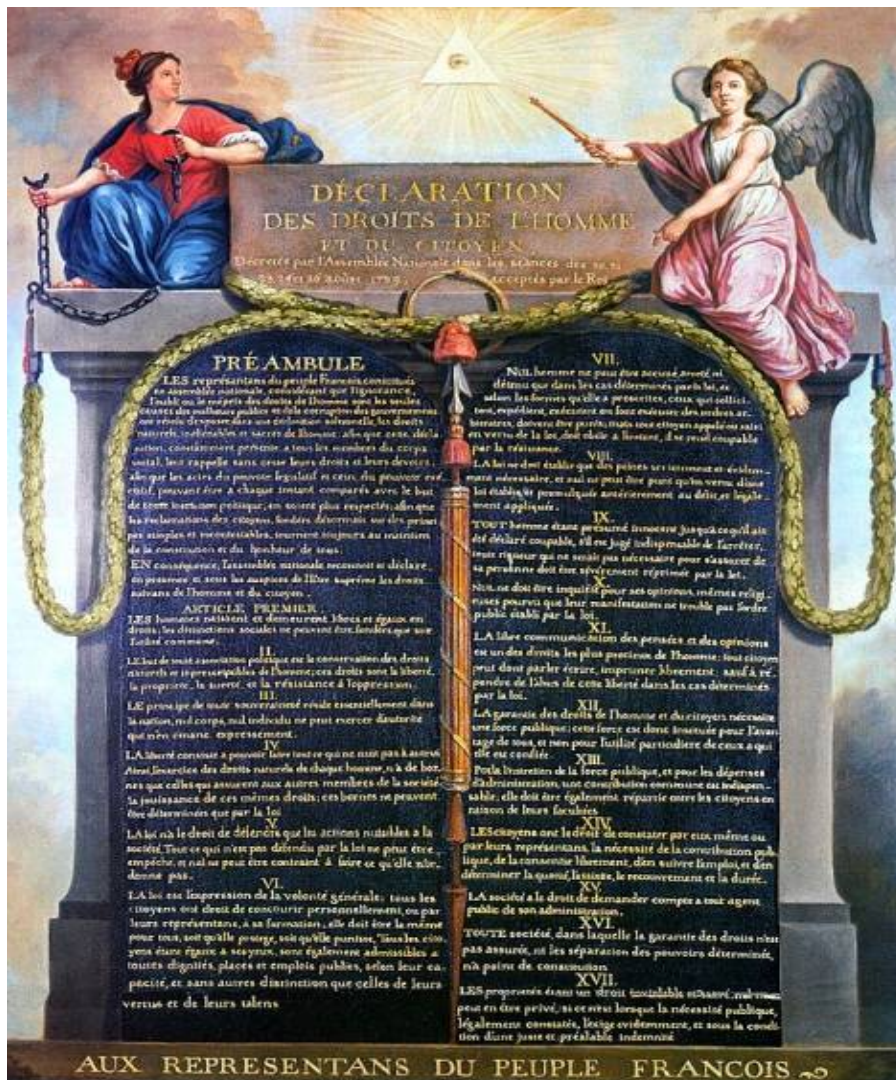 DÉCLARATION
DES DROITS DE L'HOMME
ET DU CITOYEN,
Décretés par l'Assemblée Nationale dans les séances des 20. 21
23. 24 et 26 août 1789, acceptés par le Roi
PRÉAMBULE
LES représentans du peuple François, constitués
en assemblée nationale, considérant que l'ignorance,
l'oubli ou le mépris des droits de l'homme sont les seules
causes des malheurs publics et de la corruption des gouvernemens
ont résolu d'exposer dans une déclaration solennelle, les droits
naturels, inaliénables et sacrés de l'homme; afin que cette décla
ration, constamment présente a tous les membres du corps
social, leur rappelle sans cesse leurs droits et leurs devoirs,
afin que les actes du pouvoir législatif et ceux du pouvoir exé
cutif, pouvant être a chaque instant comparés avec le but
de toute institution politique, en soient plus respectés; afin que
les réclamations des citoyens, fondées désormais sur des princi
pes simples et incontestables, tournent toujours au maintien
de la constitution et du bonheur de tous.
EN conséquence, l'assemblée nationale reconnoit et déclare
en présence et sous les auspices de l'Être suprême les droits
suivans de l'homme et du citoyen.
ARTICLE PREMIER.
LES hommes naissent et demeurent libres et égaux en
droits; les distinctions sociales ne peuvent être fondées que sur
l'utilité commune.
II.
LE but de toute association politique est la conservation des droits
naturels et imprescriptibles de l'homme; ces droits sont la liberté,
la propriété, la sureté, et la résistance à l'oppression.
III.
LE principe de toute souveraineté réside essentiellement dans
la nation, nul corps, nul individu ne peut exercer d'autorité
qui n'en emane expressement.
IV.
LA liberté consiste a pouvoir faire tout ce qui ne nuit pas à autrui
Ainsi, l'exercice des droits naturels de chaque homme, n'a de bor
nes que celles qui assurent aux autres membres de la société
la jouissance de ces mêmes droits; ces bornes ne peuvent
être déterminées que par la loi
V.
LA loi n'a le droit de défendre que les actions nuisibles à la
société. Tout ce qui n'est pas défendu par la loi ne peut être
empêché, et nul ne peut être contraint à faire ce qu'elle n'or
donne pas.
VI.
LA loi est l'expression de la volonté générale; tous les
citoyens ont droit de concourir personnellement, ou par
leurs représentans, à sa formation; elle doit être la même
pour tous, soit qu'elle protege, soit qu'elle punisse, Tous les cito
yens étant égaux à ses yeux, sont également admissibles à
toutes dignités, places et emplois publics, selon leur ca
pacité, et sans autres distinction que celles de leurs
vertus et de leurs talens
VII.
NUL homme ne peut être accusé, arreté ni
détenu que dans les cas déterminés par la loi, et
selon les formes qu'elle a prescrites, ceux qui sollici
tent, expédient, exécutent ou font exécuter des ordres ar
bitraires, doivent être punis; mais tout citoyen appelé ou saisi
en vertu de la loi, doit obéir a l'instant, il se rend coupable
par la résistance.
VIII.
LA loi ne doit établir que des peines strictement et évidem
ment nécessaire, et nul ne peut être puni qu'en vertu d'une
loi établie et promulguée antérierement au délit, et légale
ment appliquée.
IX.
TOUT homme étant présumé innocent jusqu'a ce qu'il ait
été déclaré coupable, s'il est jugé indispensable de l'arrêter,
toute rigueur qui ne serait pas nécessaire pour s'assurer de
sa personne doit être sévèrement réprimée par la loi.
X.
NUL ne doit être inquiété pour ses opinions, mêmes religi
euses pourvu que leur manifestation ne trouble pas l'ordre
public établi par la loi.
XI.
LA libre communication des pensées et des opinions
est un des droits les plus precieux de l'homme; tout citoyen
peut dont parler écrire, imprimer librement; sauf à ré
pondre de l'abus de cette liberté dans les cas déterminés
par la loi.
XII.
LA garantie des droits de l'homme et du citoyen nécessite
une force publique; cette force est donc instituée pour l'avan
tage de tous, et non pour l'utilité particuliere de ceux a qui
elle est confiée
XIII.
Pour l'entretien de la force publique, et pour les dépenses
d'administration, une contribution commune est indispen
sable; elle doit être également répartie entre les citoyens en
raison de leurs facultées
XIV.
LES citoyens ont le droit de constater par eux même ou
par leurs représentans, la nécessité de la contribution pub
lique, de la consentir librement, d'en suivre l'emploi, et d'en
déterminer la quotité, l'assiette, le recouvrement et la durée.
XV.
LA société a le droit de demander compte a tout agent
public de son administration.
XVI.
TOUTE société, dans laquelle la garantie des droits n'est
pas assurée, ni les séparation des pouvoirs déterminée,
n'a point de constitution
XVII.
LES propriétés étant un droit inviolable et sacré, nul ne
peut en être privé, si ce n'est lorsque la nécessité publique,
légalement constatée, l'exige evidemment, et sous la condi
tion d'une juste et préalable indemnité
AUX REPRESENTANS DU PEUPLE FRANCOIS